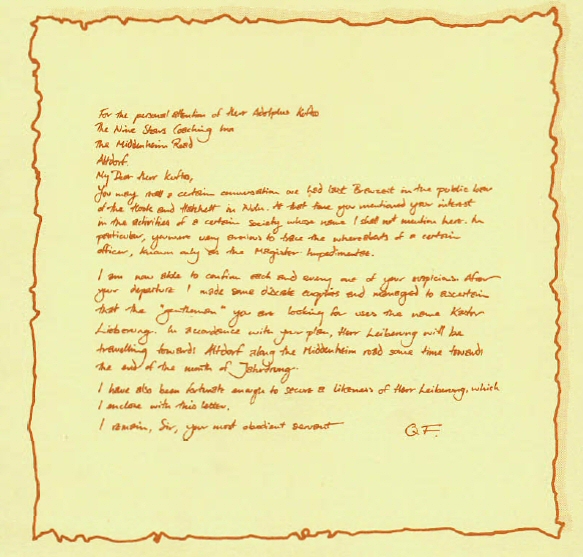 For the personal attention of Herr Adolphus Kuftsos
The Nine Stars Coaching Inn
The Middenheim Road
Altdorf.
My Dear Herr Kuftsos,
You may recall a certain conversation we had last Brauzeit in the public bar
of the Hook and Hatchett in Nuln. At that time you mentioned your interest
in the activities of a certain society whose name I shall not mention here. In
particular, you were very anxious to trace the whereabouts of a certain
officer, known only as the Magister Impedimentae.
I am now able to confirm each and every one of your suspicions. After
your departure I made some discrete enquiries and managed to ascertain
that the "gentleman" you are looking for uses the name Kastor
Lieberung. In accordance with your plan, Herr Leiberung will be
travelling towards Altdorf along the Middenheim road some time towards
the end of the month of Jahrdrung.
I have also been fortunate enough to secure a likeness of Herr Leiberung, which
I enclose with this letter.
I remain, Sir, your most obedient servant
Q.F.